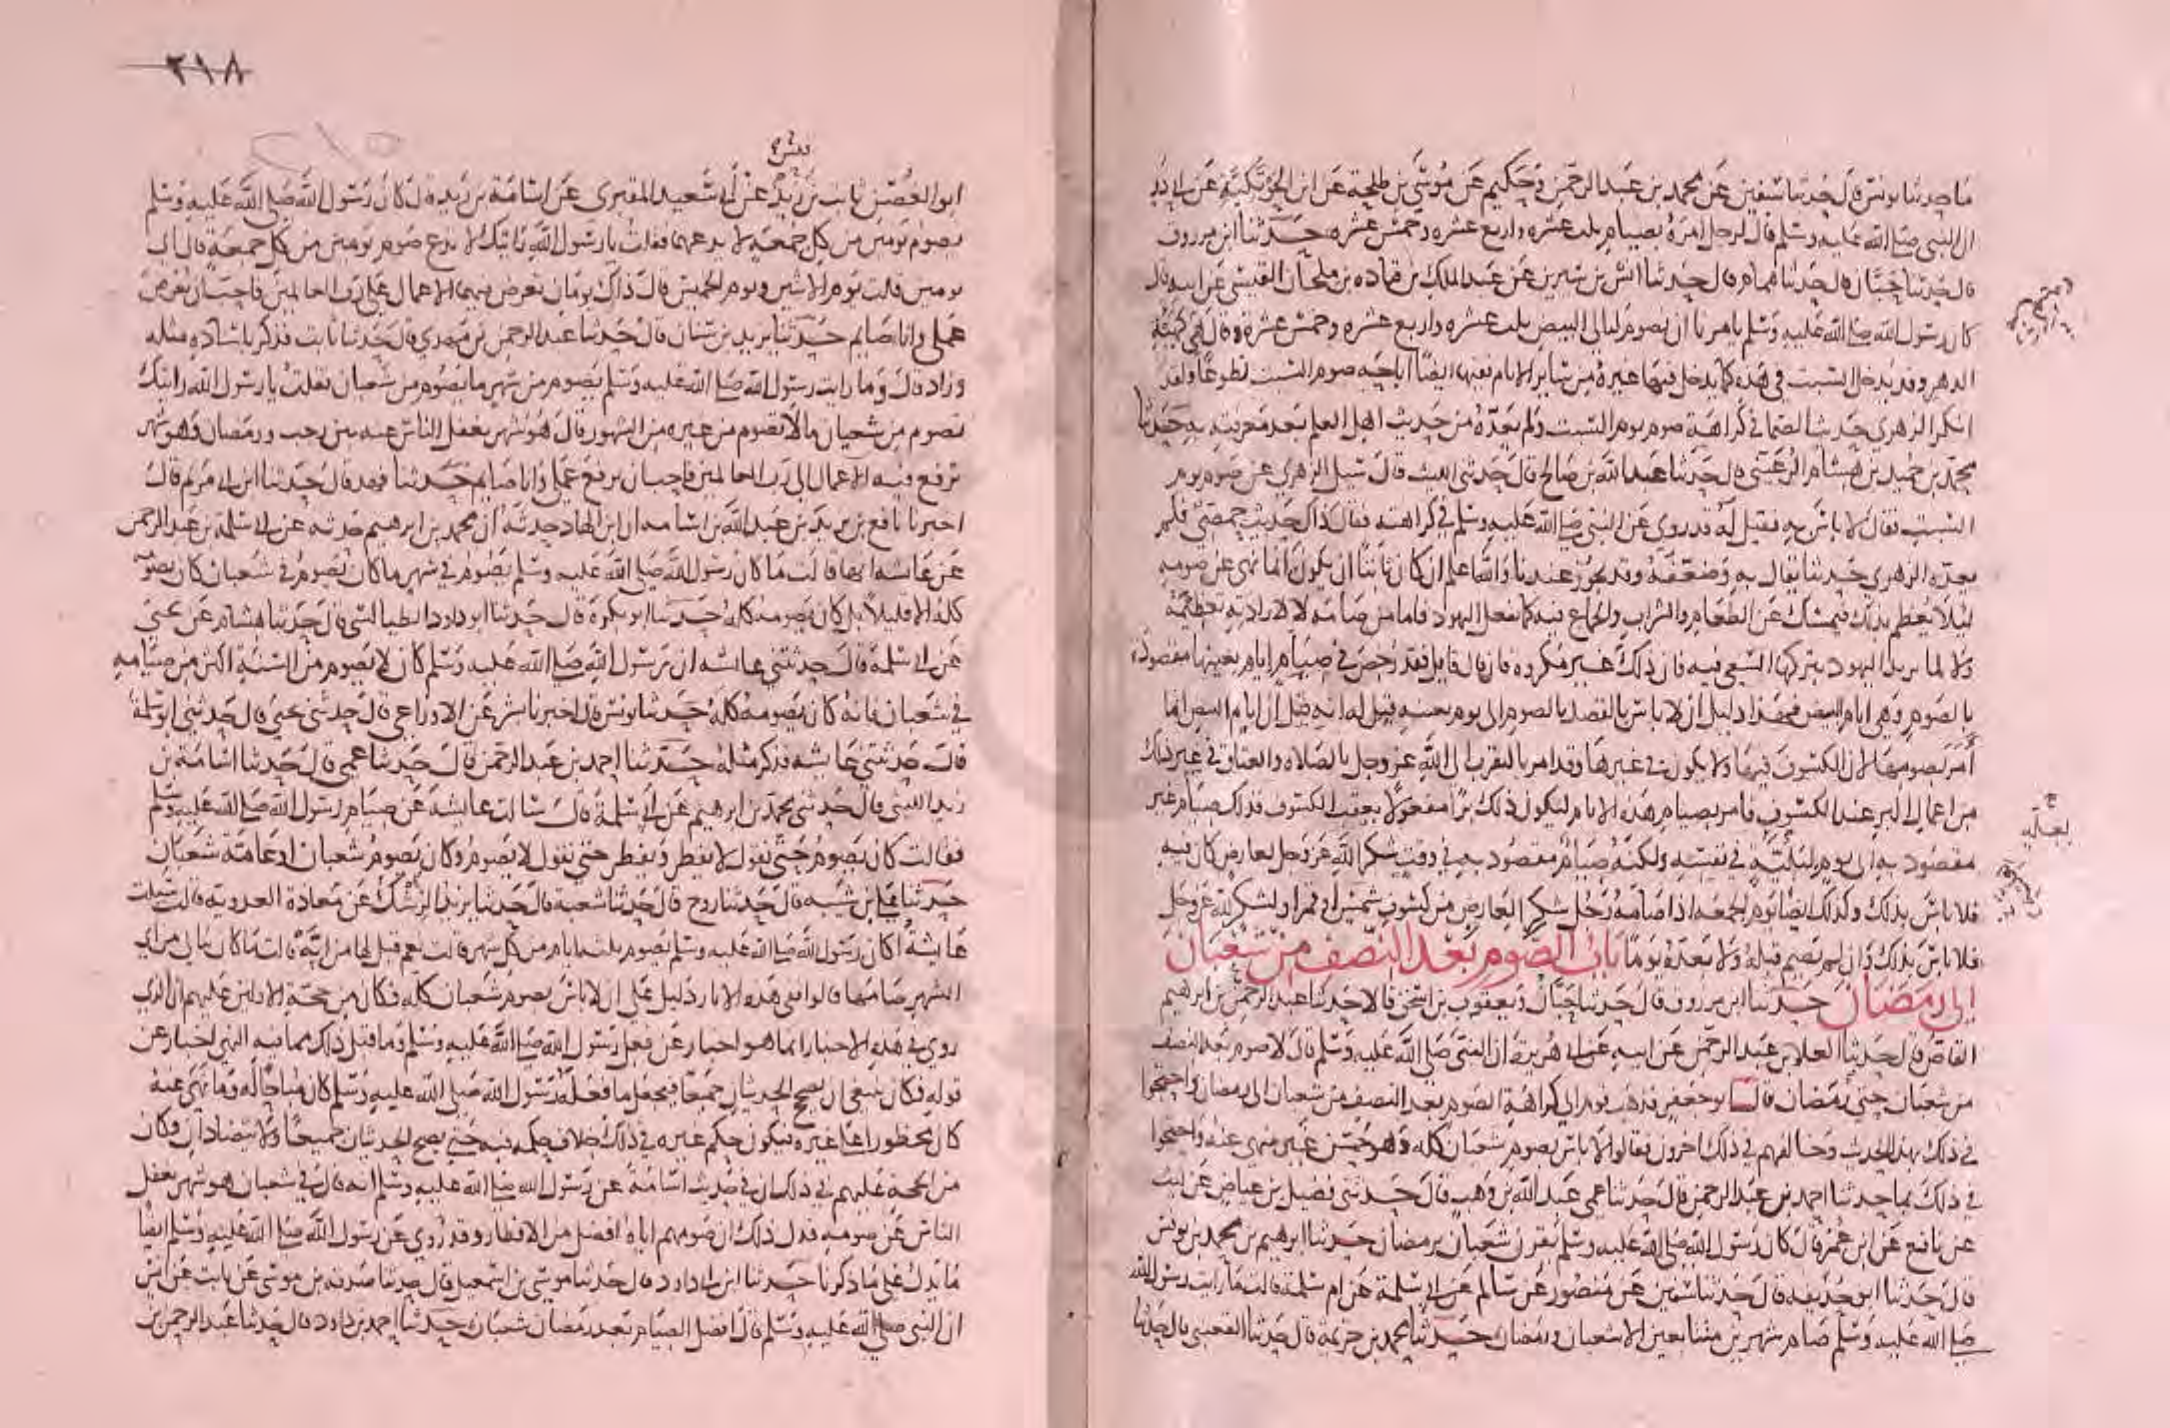 ما حدثنا يونس قال حدثنا سفين عن محمد بن عبد الرحمن وحكيم عن موسى بن طلحة عن ابن الحوتكية عن ابي ذر
ان النبي صلى الله عليه وسلم قال لرجل امره بصيام ثلث عشره واربع عشره وخمس عشره حدثنا ابن مرزوق
قال حدثنا حبان قال حدثنا همام قال حدثنا انس بن سيرين عن عبد الملك بن قتاده بن ملحان القيسي عن ابيه قال
كان رسول الله صلى الله عليه وسلم يامرنا ان نصوم ليالي البيض ثلث عشره واربع عشره وخمس عشرة وقال هي كهيئة
الدهر وقد يدخل السبت في هذه كما يدخل فيها غيره من سائر الايام ففيها ايضا اباحة صوم السبت تطوعا ولقد
انكر الزهري حديث الصماء في كراهة صوم يوم السبت ولم يعده من حديث اهل العلم بعد معرفته به حدثنا
محمد بن حميد بن هشام الرعيني قال حدثنا عبد الله بن صالح قال حدثني الليث قال سئل الزهري عن صوم يوم
السبت فقال لا باس به فقيل له قد روي عن النبي صلى الله عليه وسلم في كراهته فقال ذاك حديث حمصي فلم
يعده الزهري حديثا يقال به وضعفه وقد يجوز عندنا والله اعلم ان كان ثابتا ان يكون انما نهي عن صومه
ليلا يعظم بذلك فيمسك عن الطعام والشراب والجماع فيه كما يفعل اليهود فاما من صامه لا لارادته تعظيمه
ولا لما يريد اليهود بتركها السعي فيه فان ذلك غير مكروه فان قال قايل فقد رخص في صيام ايام بعينها مقصودة
بالصوم وهي ايام البيض فهذا دليل ان لا باس بالقصد بالصوم الى يوم بعينه قيل له انه قيل ان ايام البيض انما
امر بصومها لان الكسوف يكون فيها ولا يكون في غيرها وقد امر بالتقرب الى الله عز وجل بالصلاه والعتاق في غير ذلك
من اعمال البر عند الكسوف فامر بصيام هذه الايام ليكون ذلك برا مفعولا بعقب الكسوف فذلك صيام غير
مقصود به الى يوم لعلته في نفسه ولكنه صيام مقصود به في وقت شكر الله عز وجل لعارض كان فيه
فلا باس بذلك وكذلك ايضا يوم الجمعه اذا صامه رجل شكر العارض من كسوف شمس او قمر او لشكر لله عز وجل
فلا باس بذلك وان لم يصم قبله ولا بعده يوما باب الصوم بعد النصف من شعبان
الى رمضان حدثنا ابن مرزوق قال حدثنا حبان ويعقوب بن اسحق قالا حدثنا عبد الرحمن بن ابرهيم
القاص قال حدثنا العلا بن عبد الرحمن عن ابيه عن ابي هريرة ان النبي صلى الله عليه وسلم قال لا صوم بعد النصف
من شعبان حتى رمضان قال ابو جعفر فذهب قوم الى كراهة الصوم بعد النصف من شعبان الى رمضان واحتجوا
في ذلك بهذا الحديث وخالفهم في ذلك اخرون فقالوا لا باس بصوم شعبان كله وهو حسن غير منهي عنه واحتجوا
في ذلك بما حدثنا احمد بن عبد الرحمن قال حدثنا عمي عبد الله بن وهب قال حدثني فضيل بن عياض عن ليث
عن نافع عن ابن عمر قال كان رسول الله صلى الله عليه وسلم يقرن شعبان برمضان حدثنا ابرهيم بن محمد بن يونس
قال حدثنا ابو حذيفة قال حدثنا سفين عن منصور عن سالم عن ابي سلمة عن ام سلمة قالت ما رايت رسول الله
صلى الله عليه وسلم صام شهرين متتابعين الا شعبان ورمضان حدثنا محمد بن خزيمة قال حدثنا القعنبي قال حدثنا
لعله
٢١٨
قيس
ابو الغصن ثابت بن زيد عن ابي سعيد المقبري عن اسامة بن زيد قال كان رسول الله صلى الله عليه وسلم
يصوم يومين من كل جمعه لا يدعهما فقلت يا رسول الله رايتك لا تدع صوم يومين من كل جمعة قال اي
يومين قلت يوم الاثنين ويوم الخميس قال ذاك يومان تعرض فيهما الاعمال على رب العالمين فاحب ان يعرض
عملي وانا صايم حدثنا يزيد بن سنان قال حدثنا عبد الرحمن بن مهدي قال حدثنا ثابت فذكر باسناده مثله
وزاد قال وما رايت رسول الله صلى الله عليه وسلم يصوم من شهر ما يصوم من شعبان فقلت يا رسول الله رايتك
تصوم من شعبان مالا تصوم من غيره من الشهور قال هو شهر يغفل الناس عنه بين رجب ورمضان وهو شهر
ترفع فيه الاعمال الى رب العالمين فاحب ان يرفع عملي وانا صايم حدثنا فهد قال حدثنا ابن ابي مريم قال
اخبرنا نافع بن يزيد بن عبد الله بن اسامه ان ابن الهاد حدثه ان محمد بن ابرهيم حدثه عن ابي سلمة بن عبد الرحمن
عن عائشه انها قالت ما كان رسول الله صلى الله عليه وسلم يصوم في شهر ما كان يصوم في شعبان كان يصومه
كله الا قليلا بل كان يصومه كله حدثنا ابو بكرة قال حدثنا ابو داود الطيالسي قال حدثنا هشام عن يحيى
عن ابي سلمة قال حدثتني عائشه ان رسول الله صلى الله عليه وسلم كان لا يصوم من السنة اكثر من صيامه
في شعبان فانه كان يصومه كله حدثنا يونس قال اخبرنا بشر عن الاوزاعي قال حدثني يحيى قال حدثني ابو سلمة
قال حدثتني عائشه فذكر مثله حدثنا احمد بن عبد الرحمن قال حدثنا عمي قال حدثنا اسامة بن
زيد الليثي قال حدثني محمد بن ابرهيم عن ابي سلمة قال سالت عايشة عن صيام رسول الله صلى الله عليه وسلم
فقالت كان يصوم حتى نقول لا يفطر ويفطر حتى نقول لا يصوم وكان يصوم شعبان او عامة شعبان
حدثنا علي بن شيبه قال حدثنا روح قال حدثنا شعبة قال حدثنا يزيد الرشك عن معادة العدوية قالت سئلت
عايشة اكان رسول الله صلى الله عليه وسلم يصوم ثلثة ايام من كل شهر قالت نعم قيل لها من ايه قالت ما كان يبالي من اي
الشهر صامها قالوا ففي هذه الاثار دليل على ان لا باس بصوم شعبان كله فكان من حجة الاولين عليهم ان الذي
روي في هذه الاخبار انما هو اخبار عن فعل رسول الله صلى الله عليه وسلم وما قبل ذلك مما فيه النهي اخبار عن
قوله فكان ينبغي ان يصح الحديثان جميعا فيجعل ما فعله رسول الله صلى الله عليه وسلم كان مباحا له وما نهى عنه
كان محظورا على غيره فيكون حكم غيره في ذلك خلاف حكمه فيه حتى يصح الحديثان جميعا ولا يتضادان فكان
من الحجة عليهم في ذلك ان في حديث اسامة عن رسول الله صلى الله عليه وسلم انه قال في شعبان هو شهر يغفل
الناس عن صومه فدل ذلك ان صومهم اياه افضل من الافطار وقد روي عن رسول الله صلى الله عليه وسلم ايضا
ما يدل على ما ذكرنا حدثنا ابن ابي داود قال حدثنا موسى بن اسمعيل قال حدثنا صدقه بن موسى عن ثابت عن انس
ان النبي صلى الله عليه وسلم قال افضل الصيام بعد رمضان شعبان حدثنا احمد بن داود قال حدثنا عبد الرحمن بن